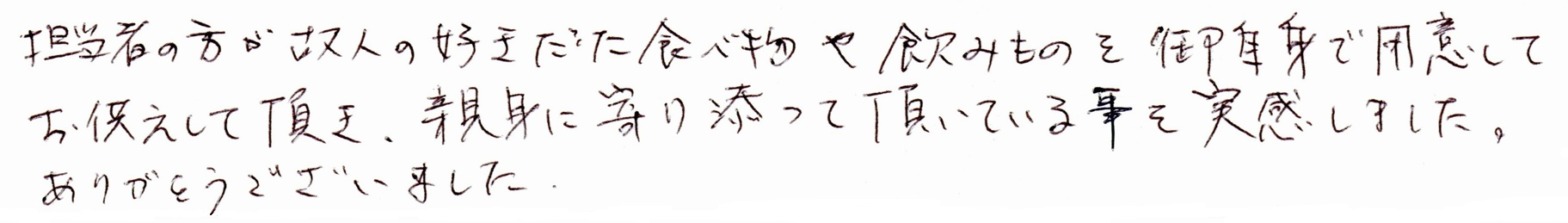 担当者の方が故人の好きだった食べ物や飲みものを御自身で用意して
お供えして頂き、親身に寄り添って頂いている事を実感しました。
ありがとうございました.